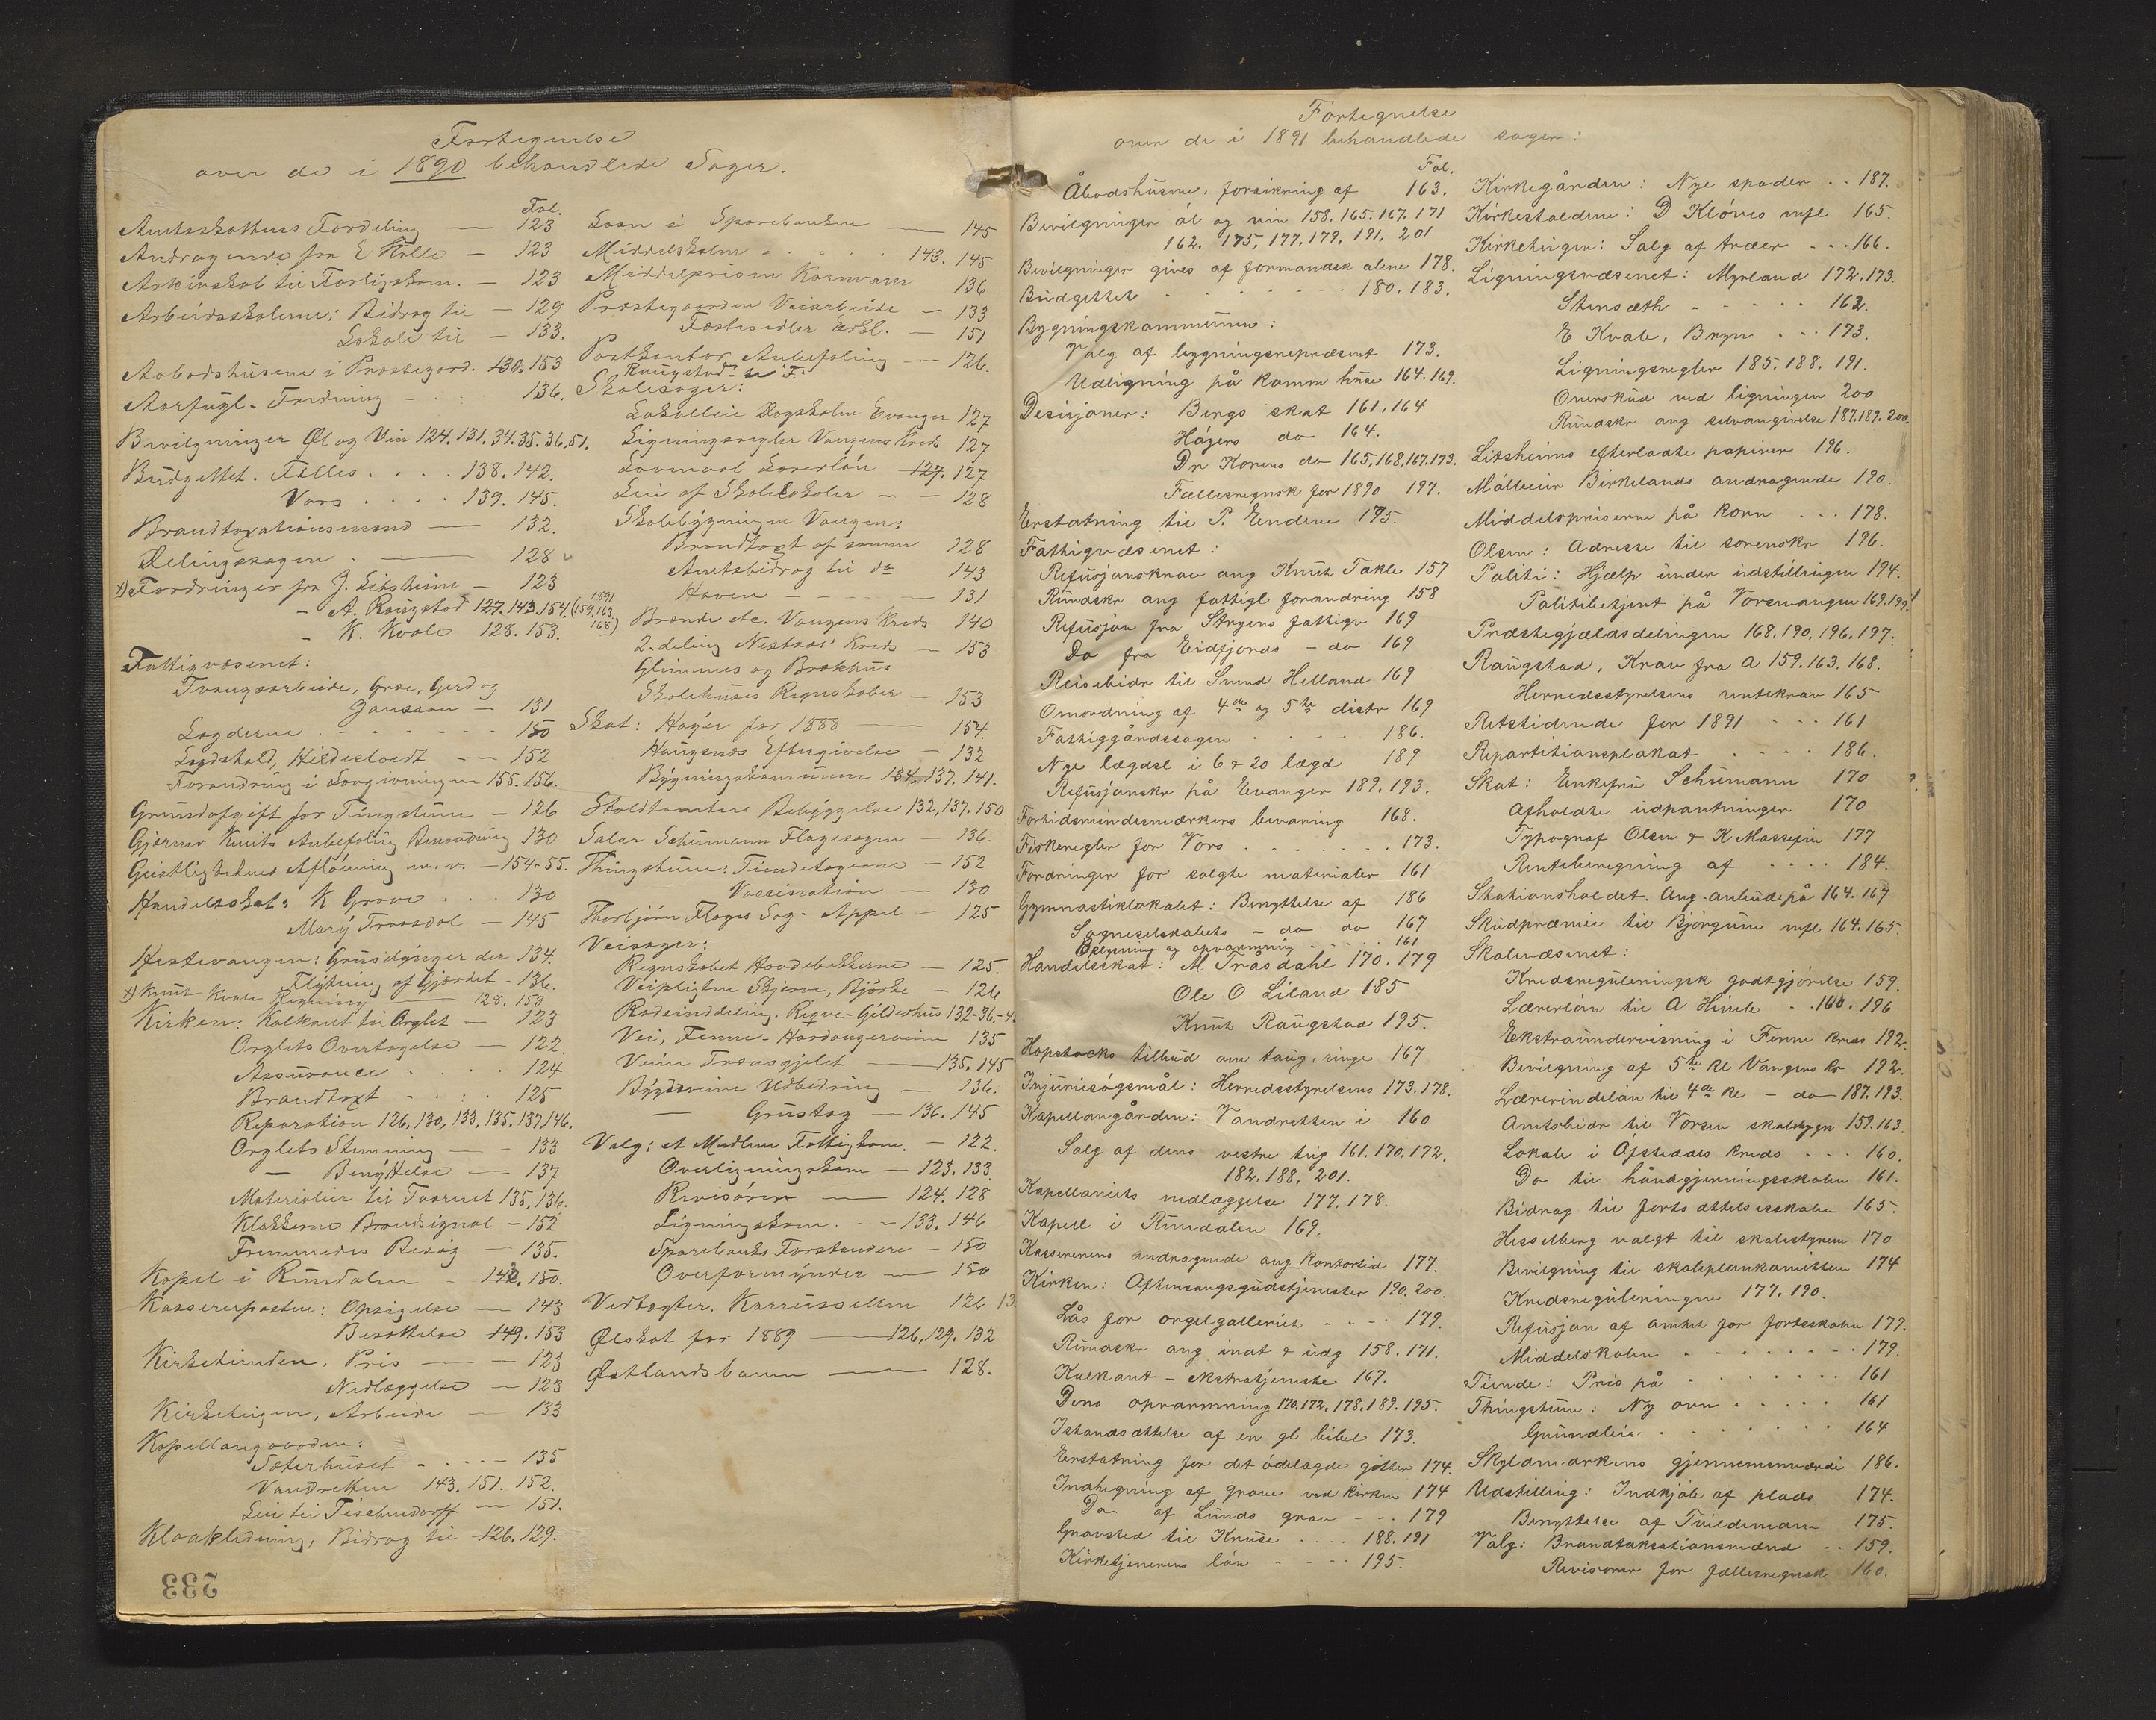 Fortegnelse
over de i 1890 behandlede Sager.
Fol.
Amtsskattens Fordeling — 123
Andragende fra E Kolle — 123
Arkivskab til Forligskom. — 123
Arbeidsskolerne: Bidrag til — 129
Lokale til — 133.
Aabodshusene i Prestegaard. 130. 153
Aarfugl. Fredning — 136.
Bevilgninger Øl og Vin 124. 131. 34. 35. 36. 51.
Budgettet. Fælles . . . . 138. 142.
Vors . . . . 139. 145.
Brandtaxationsmænd — 132.
Delingssagen . — 128
x) Fordringer fra J. Litsheim — 123
— A. Raugstad 127. 143. 154. (1891 159, 163 168)
— K. Kvale 128. 153.
Fattigvæsenet:
Tvangsarbeide, Groe, Gerd og
Jansson — 131
Lægderne . . . . . . 150
Lægdshold, Hildestvedt — 152
Forandring i Lovgivningen 155. 156.
Grundafgift for Tingstuen — 126
Gjerner Knuts Anbefaling Benaadning 130
Geistlighedens Aflønning m. v. — 154-55.
Handelsskat: K Grove . . . 130
Mary Traasdal — 145
Hestevangen: Grusdynger der 134.
Flytning af Gjærdet — 136.
x) Knut Kvale Regning — 128. 153
Kirken: Kalkant til Orglet — 123
Orglets Overtagelse — 122.
Assurance . . . . 124
Brandtaxt . . . . 125
Reparation 126, 130, 133, 135, 137, 146.
Orglets Stemning — 133
— Benyttelse — 137
Materialier til Taarnet 135, 136.
Klokkerne Brandsignal — 152
Fremmedes Besøg — 135.
Kapel i Rundalen — 142, 150.
Kassererposten: Opsigelse — 143
Besættelse 149. 153
Kirketienden. Pris — 123
Nedlæggelse — 123
Kirketeigen, Arbeide — 133
Kapellangaarden:
Sæterhuset . . . . — 135
Vandretten 143. 151. 152.
Leie til Tischendorff — 151.
Kloakledning, Bidrag til 126. 129.
233
Laan i Sparebanken — 145
Middelskolen . . . . . 143. 145
Middelprisen Kornvarer 136
Prestegaarden Veiarbeide — 133
Fæstesedler Erkl. — 151
Postkontor, Anbefaling — 126.
Raugstad til F.
Skolesager:
Lokalleie Dagskolen Evanger 127
Ligningsregler Vangens Kreds 127
Lavmaal Lærerløn 127. 127
Leie af Skolelokaler — 128
Skolebygningen Vangen:
Brandtaxt af samme 128
Amtsbidrag til do 143
Haven — 131
Brønde etc. Vangens Kreds 140
2-deling Nestaas Kreds — 153
Glimmes og Brækhus
Skolehuses Regnskaber — 153
Skat: Høyer for 1888 — 154.
Haugsnæs Eftergivelse — 132
Bygningskommunen 134, 137. 141.
Stoldtomtens Bebyggelse 132, 137, 150
Salar Schumann Flagesagen — 136.
Thingstuen: Tiendetagerne — 152
Vaccination — 130
Thorbjørn Flages Sag. Appel — 125
Veisager:
Regnskabet Haadebakkerne — 125.
Veipligten Skjerve, Bjørke — 126
Rodeinddeling. Reqve-Gildeshus 132-36.-4.
Vei, Fenne-Hardangerveien 135
Veien Traasgjelet — 135, 145
Bygdeveiene Udbedring — 136.
— Grustag — 136. 145
Valg: et Medlem Fattigkom. — 122.
Overligningskom — 123. 133
Revisører — 124. 128
Ligningskom. — 133, 146
Sparebanks Forstandere — 150
Overformynder — 150
Vedtægter, Karrussellen 126 13
Ølskat for 1889 — 126, 129. 132
Østlandsbanen — 128.
Fortegnelse
over de i 1891 behandlede sager:
Fol.
Åbodshusene, forsikring af 163.
Bevilgninger øl og vin 158. 165. 167. 171
162. 175, 177. 179. 191. 201
Bevilgninger gives af formandsk alene 178.
Budgettet . . . . . 180. 183.
Bygningskommunen:
Valg af bygningsrepræsent 173.
Udligning på komm huse 164. 169.
Desisjoner: Bergs skat 161. 164
Høyers do 164.
Dr Korens do 165, 168, 167. 173.
Fællesregnsk for 1890 197.
Erstatning til P. Endeve 175.
Fattigvæsenet:
Refusjonskrav ang Knut Takle 157
Rundskr ang fattigl forandring 158
Refusjon fra Stryens fattigv 169
Do fra Eidfjords — do 169
Reisebidr til Svend Helland 169
Omordning af 4de og 5te distr 169
Fattiggårdssagen . . . . 186.
Nye lægdsl i 6 & 20 lægd 189
Refusjonskr på Evanger 189. 193.
Fortidsmindesmærkers bevaring 168.
Fiskeregler for Vors . . . . . 173.
Fordringer for solgte materialer 161
Gymnastiklokalet: Benyttelse af 186
Sogneselskabets — do do 167
Belysning og opvarmning . . . . 161
Handelsskat: M Tråsdahl 170. 179
Ole O Liland 185
Knut Raugstad 195.
Hopstocks tilbud om taug, ringe 167
Injuriesøgsmål: Herredsstyrelsens 173. 178.
Kapellangården: Vandretten i 160
Salg af dens vestre teig 161. 170. 172.
182. 188. 201.
Kapellaniets nedlæggelse 177. 178.
Kapell i Rundalen 169.
Kassererens andragende ang kontortid 177.
Kirken: Aftensangsgudstjenester 190. 200.
Lås for orgelgalleriet . . . . 179.
Rundskr ang indt & udg 158. 171.
Kalkant — ekstratjeneste 167.
Dens opvarmning 170. 172, 178. 189. 195.
Istandsættelse af en gl bibel 173.
Erstatning for det ødelagde gitter 174.
Indhegning af grave ved kirken 174
Do af Lunds grav . . . 179
Gravsted til Kruse . . . . 188. 191
Kirketjenerens løn . . . . 195.
Kirkegården: Nye spader . . 187.
Kirkestoldene: D Kløves mfl 165.
Kirketeigen: Salg af træer . . . 166.
Ligningsvæsenet: Myrland 172, 173.
Stensæth . . . . . 162.
E Kvale, Bryn . . . 173.
Ligningsregler 185. 188. 191.
Overskud ved ligningen 200
Rundskr ang selvangivelse 187. 189. 200.
Litsheims efterladte papirer 196.
Målleiar Birkelands andragende 190.
Middelspriserne på korn . . . 178.
Olsen: Adresse til sorenskr 196.
Politi: Hjælp under udstillingen 194.
Politibetjent på Vorsevangen 169. 199.
Præstegjældsdelingen 168. 190. 196. 197.
Raugstad, Krav fra A 159. 163. 168.
Herredsstyrelsens rentekrav 165
Retstidende for 1891 . . . 161
Repartitionsplakat . . . . 186.
Skat: Enkefru Schumann 170
Afholdte udpantninger 170
Typograf Olsen & K Massejin 177
Renteberegning af . . . . 184.
Stationsholdet. Ang. anbud på 164. 167
Skudpræmie til Bjørgum mfl 164. 165.
Skolevæsenet:
Kredsreguleringsk godtgjørelse 159.
Lærerløn til A Himle . . 160. 196
Ekstraundervisning i Finne kreds 192.
Bevilgning af 5te kl Vangens kr 192.
Lærerindeløn til 4de kl — do 187. 193.
Amtsbidr til Vorsev skolebygn 159. 163.
Lokale i Øfstedals kreds . . . 160.
Do til håndgjerningsskolen 161.
Bidrag til fortsættelsesskolen 165.
Hesselberg valgt til skolestyren 170
Bevilgning til skoleplankomitteen 174
Kredsreguleringen 177. 190.
Refusjon af amtet for fortsskolen 177.
Middelskolen . . . . . . . 179.
Tiende: Pris på . . . . . . . 161
Thingstuen: Ny ovn . . . . . 161
Grundleie . . . . . . . 164
Skyldm.arkens gjennemsnværdi 186.
Udstilling: Indkjøb af plads 174.
Benyttelse af Tvildemoen 175.
Valg: Brandtaksationsmænd . . 159.
Revisorer for fællesregnsk 160.